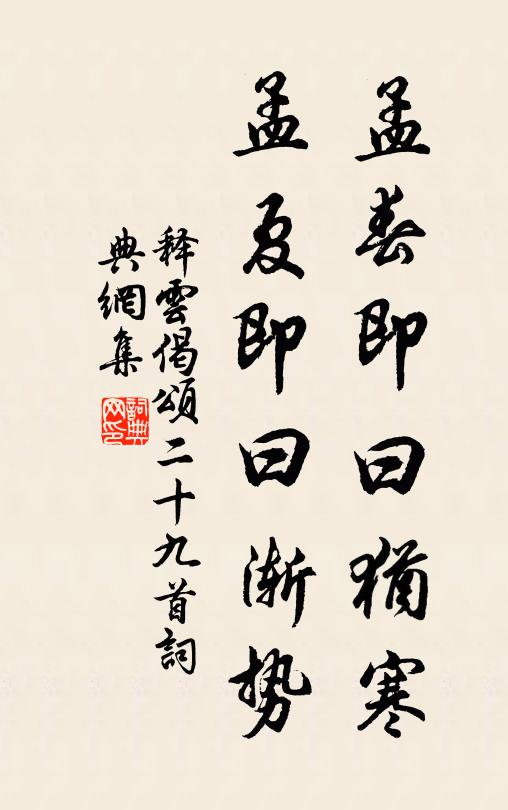 孟春即曰猶寒
孟夏即曰漸势
释雲偈頌二十九首詞
典網集
詞典
网印